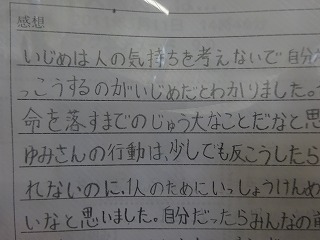 感想
いじめは人の気持ちを考えないで自分
っこうするのがいじめだとわかりました。
命を落すまでのじゅう大なことだなと思
ゆみさんの行動は、少しでも反こうしたら
れないのに、1人のためにいっしょうけんめ
いなと思いました。自分だったらみんなの前